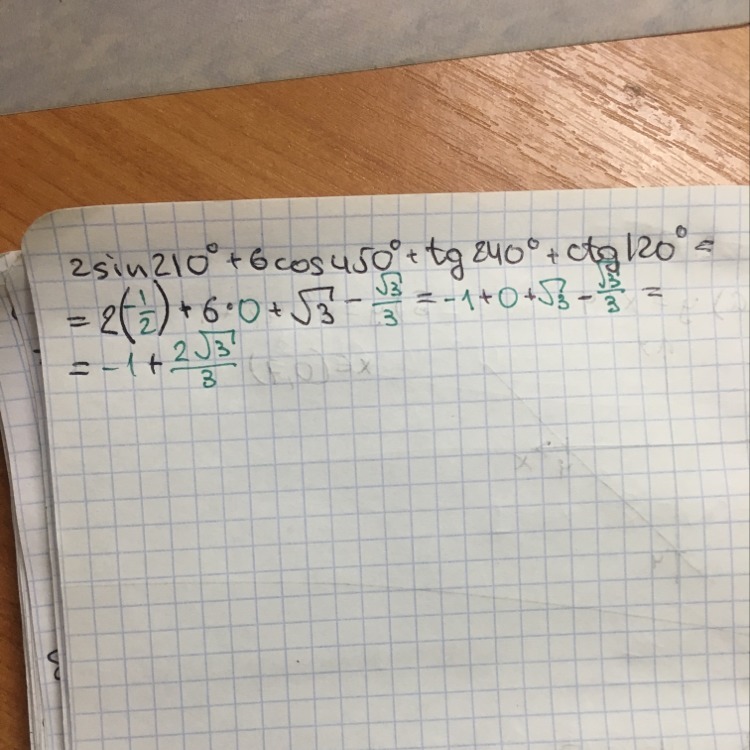 2sin210° + 6cos450° + tg240° + ctg120° =
= 2(-1/2) + 6·0 + √3 - √3/3 = -1 + 0 + √3 - √3/3 =
= -1 + 2√3/3